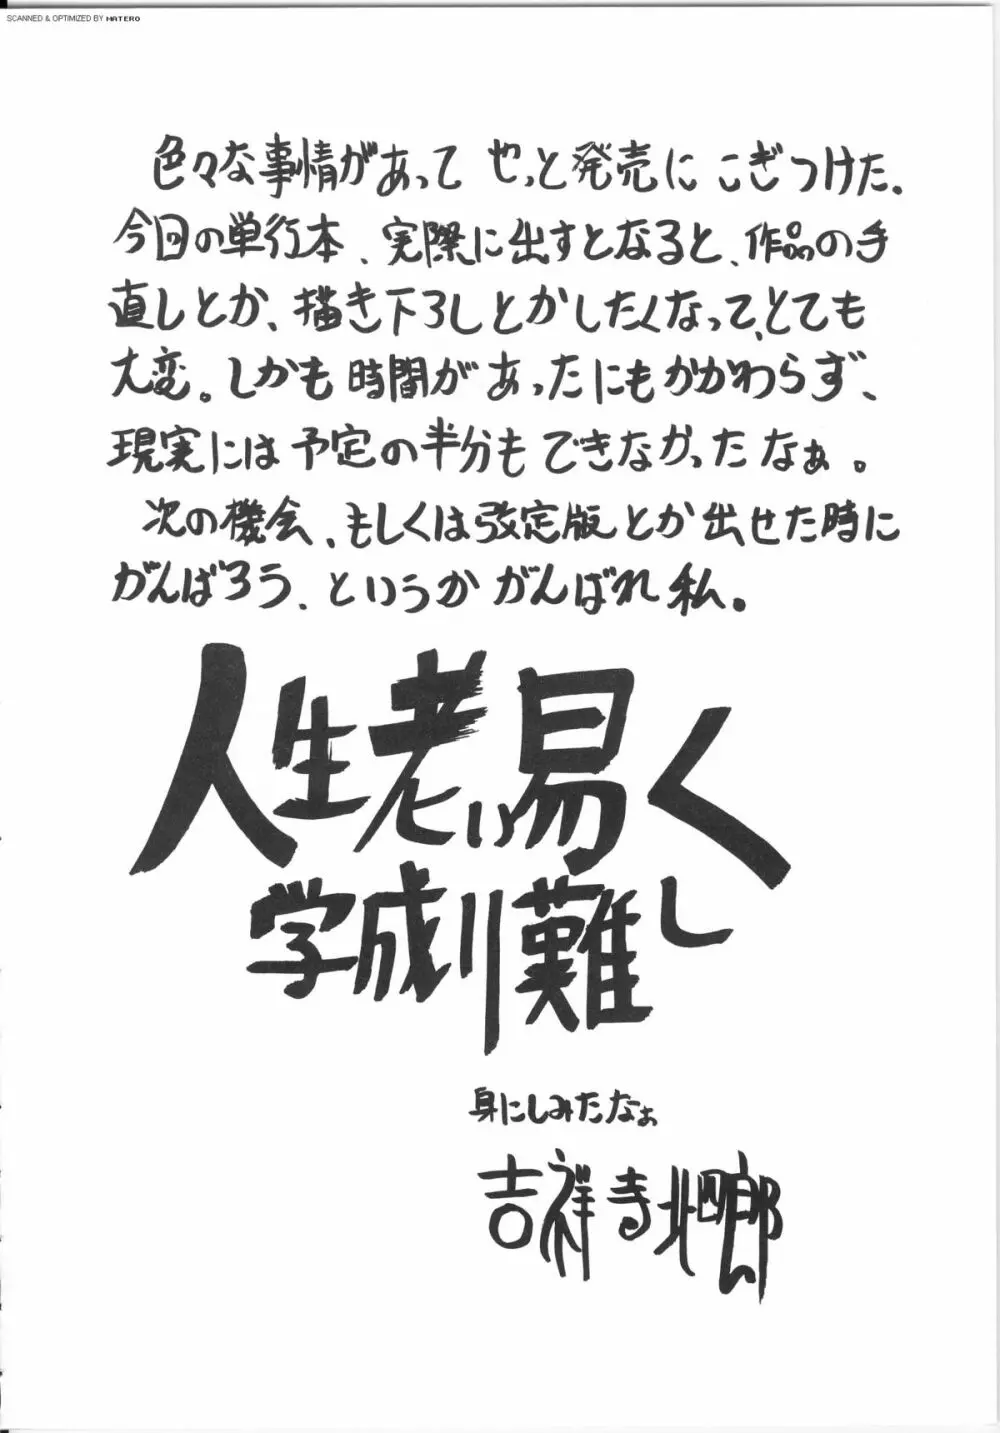 SCANNED & OPTIMIZED BY MATERO
色々な事情があって やっと発売に こぎつけた。
今回の単行本、実際に出すとなると、作品の手
直しとか、描き下ろしとかしたくなって、とても
大変。しかも時間があったにもかかわらず、
現実には予定の半分もできなかったなぁ。
次の機会、もしくは改定版とか出せた時に
がんばろう、というか がんばれ私。
人生老い易く
学成り難し
身にしみたなぁ
吉祥寺北四郎